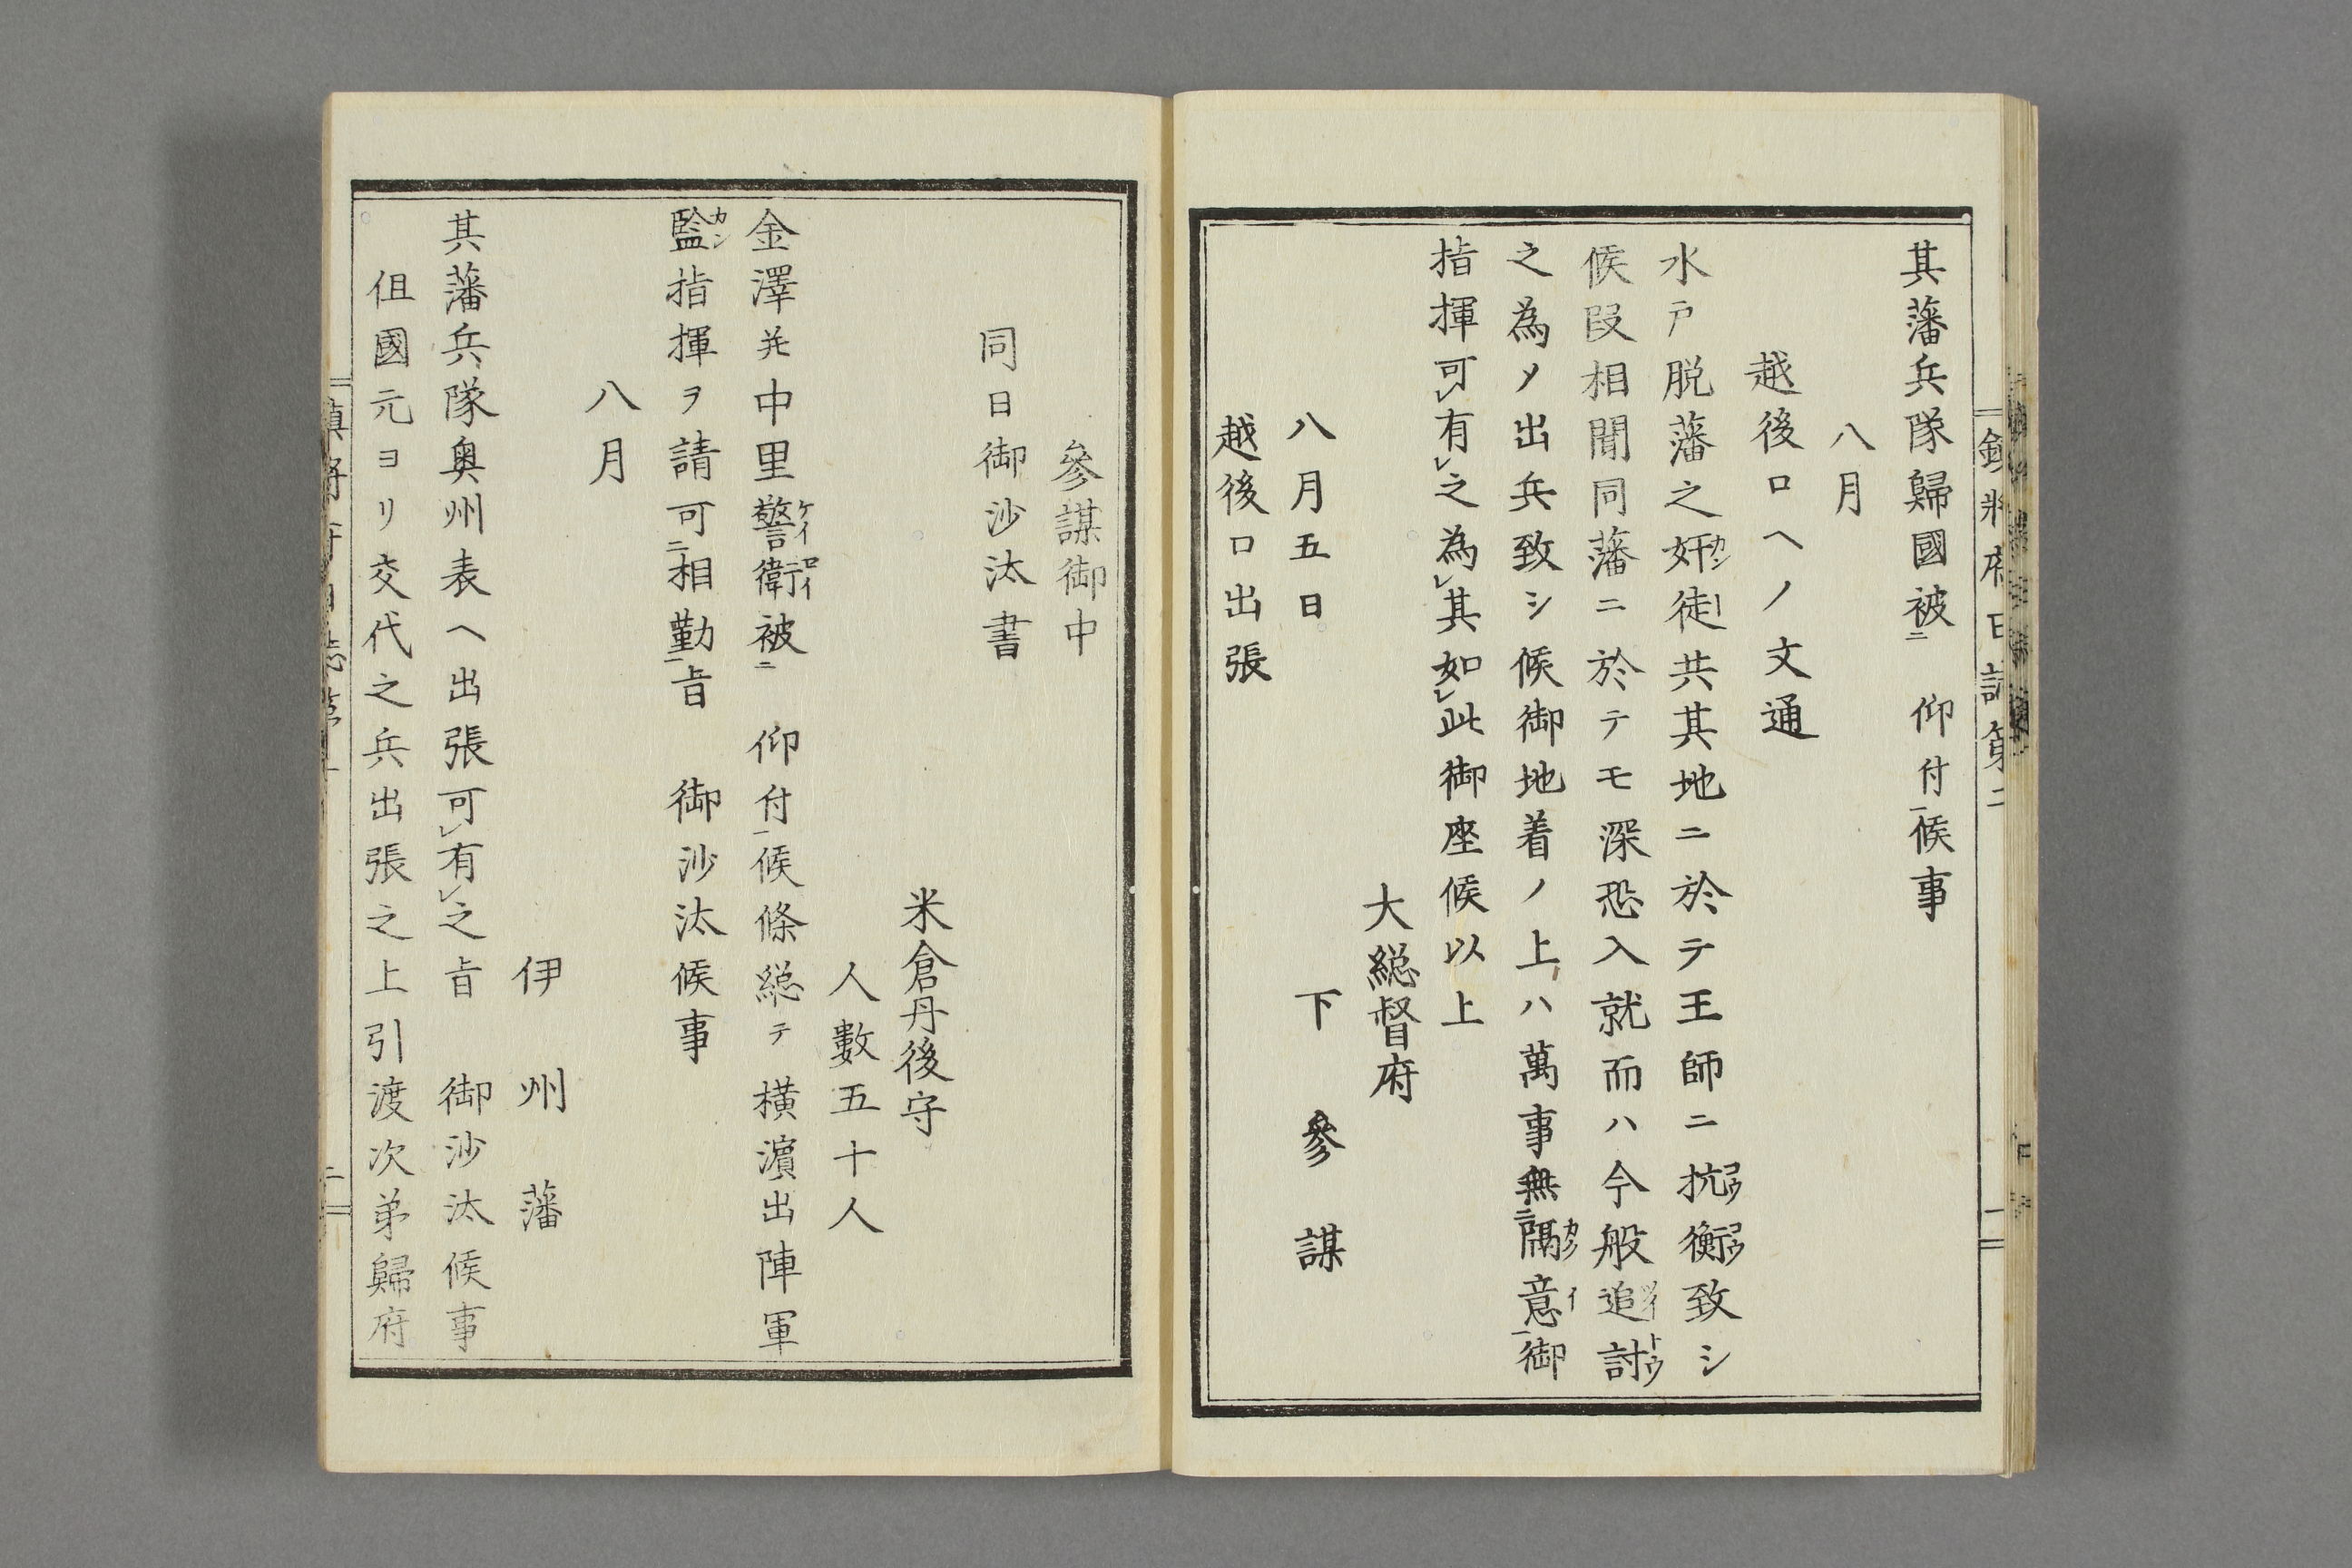 其藩兵隊歸國被㆓　仰付㆒候事
八月
越後口ヘノ文通
水戸脱藩之奸徒共其地ニ於テ王師ニ抗衡致シ
候段相聞同藩ニ於テモ深恐入就而ハ今般追討
之為メ出兵致シ候御地着ノ上ハ萬事無㆓隔意㆒御
指揮可㆑有㆑之為㆑其如㆑此御座候以上
大緫督府
下參謀
八月五日
越後口出張
參謀御中
同日御沙汰書
米倉丹後守
人數五十人
金澤并中里警衛被㆓　仰付㆒候條緫テ横濵出陣軍
監指揮ヲ請可㆓相勤㆒旨　御沙汰候事
八月
伊州藩
其藩兵隊奥州表ヘ出張可㆑有㆑之旨　御沙汰候事
伹國元ヨリ交代之兵出張之上引渡次弟歸府